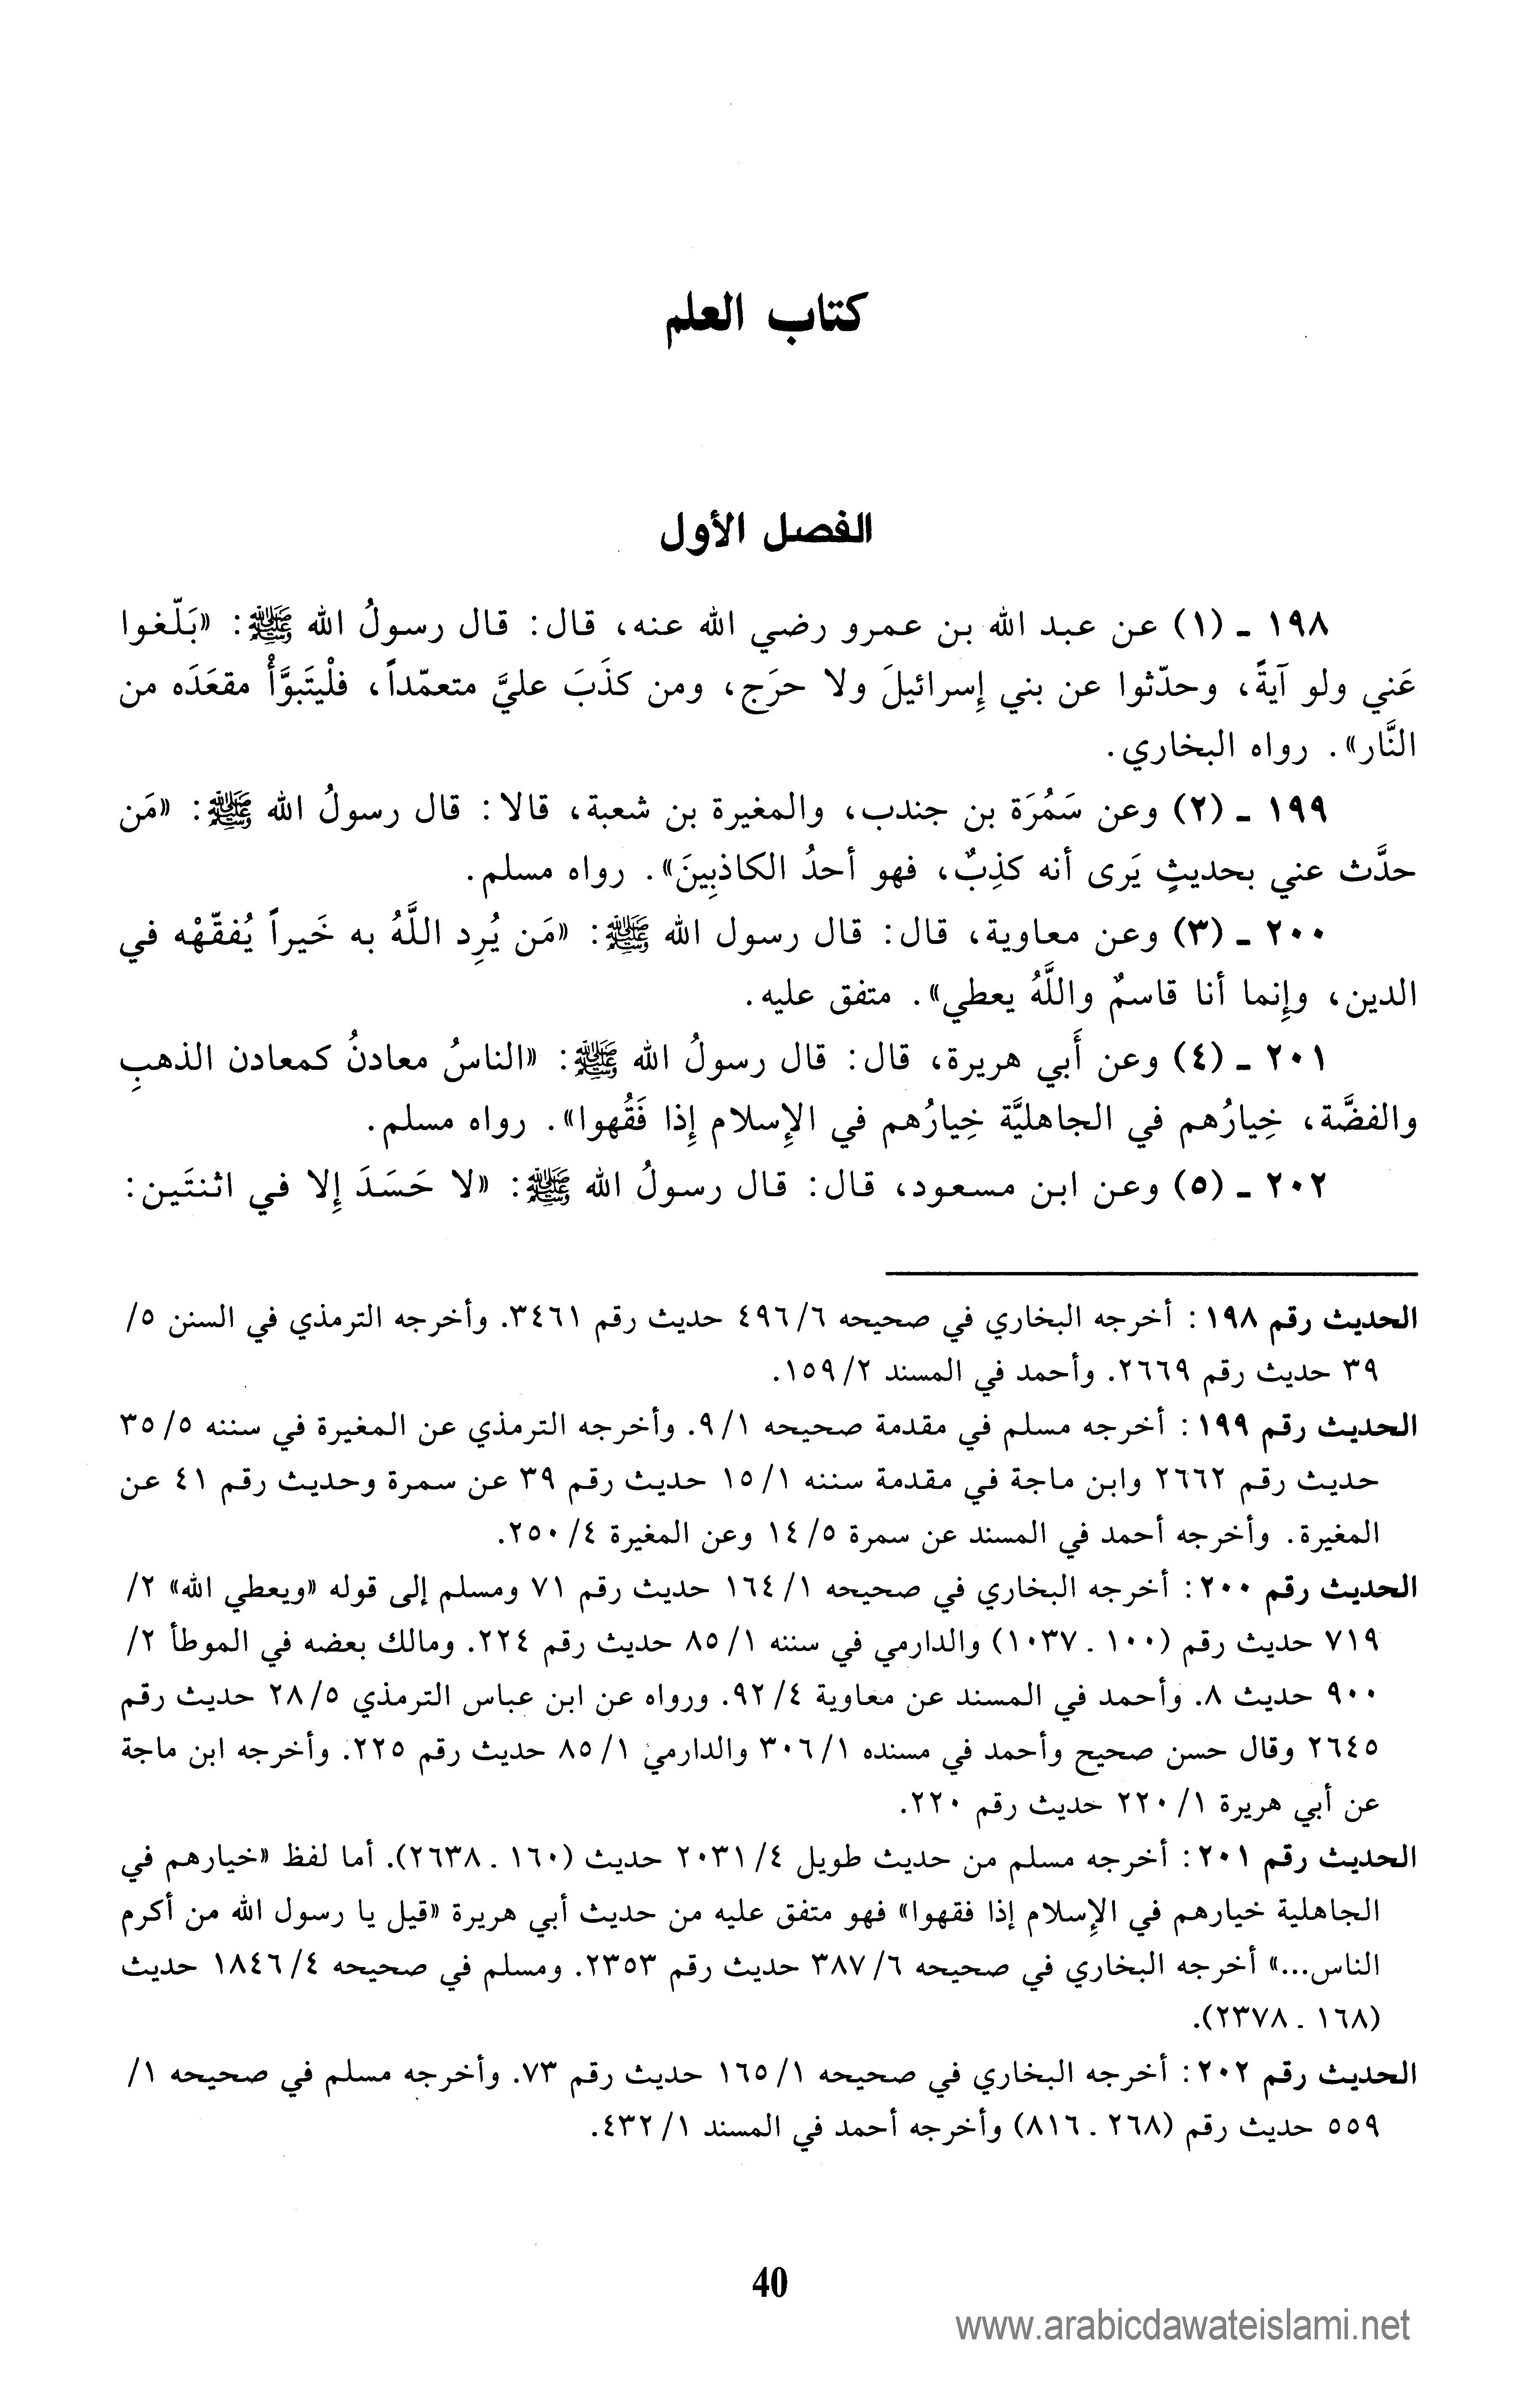 كتاب العلم
الفصل الأول
١٩٨ ـ (١) عن عبد الله بن عمرو رضي الله عنه، قال: قال رسولُ الله ﷺ: «بَلّغوا
عَني ولو آيةً، وحدّثوا عن بني إِسرائيلَ ولا حرَج، ومن كذَبَ عليَّ متعمّداً، فلْيتَبوَّأْ مقعَدَه من
النَّار». رواه البخاري.
١٩٩ ـ (٢) وعن سَمُرَة بن جندب، والمغيرة بن شعبة، قالا: قال رسولُ الله ﷺ: «مَن
حدَّث عني بحديثٍ يَرى أنه كذِبٌ، فهو أحدُ الكاذبِينَ». رواه مسلم.
٢٠٠ ـ (٣) وعن معاوية، قال: قال رسول الله ﷺ: «مَن يُرِد اللَّهُ به خَيراً يُفقّهْه في
الدين، وإِنما أنا قاسمٌ واللَّهُ يعطي». متفق عليه.
٢٠١ ـ (٤) وعن أَبي هريرة، قال: قال رسولُ الله ﷺ: «الناسُ معادنُ كمعادن الذهبِ
والفضَّة، خِيارُهم في الجاهليَّة خِيارُهم في الإِسلام إِذا فَقُهوا». رواه مسلم.
٢٠٢ ـ (٥) وعن ابن مسعود، قال: قال رسولُ الله ﷺ: «لا حَسَدَ إِلا في اثنتَين:
الحديث رقم ١٩٨: أخرجه البخاري في صحيحه ٦/ ٤٩٦ حديث رقم ٣٤٦١. وأخرجه الترمذي في السنن ٥/
٣٩ حديث رقم ٢٦٦٩. وأحمد في المسند ٢/ ١٥٩.
الحديث رقم ١٩٩: أخرجه مسلم في مقدمة صحيحه ١/ ٩. وأخرجه الترمذي عن المغيرة في سننه ٥/ ٣٥
حديث رقم ٢٦٦٢ وابن ماجة في مقدمة سننه ١/ ١٥ حديث رقم ٣٩ عن سمرة وحديث رقم ٤١ عن
المغيرة. وأخرجه أحمد في المسند عن سمرة ٥/ ١٤ وعن المغيرة ٤/ ٢٥٠.
الحديث رقم ٢٠٠: أخرجه البخاري في صحيحه ١/ ١٦٤ حديث رقم ٧١ ومسلم إلى قوله «ويعطي الله» ٢/
٧١٩ حديث رقم (١٠٠ ـ ١٠٣٧) والدارمي في سننه ١/ ٨٥ حديث رقم ٢٢٤. ومالك بعضه في الموطأ ٢/
٩٠٠ حديث ٨. وأحمد في المسند عن معاوية ٤/ ٩٢. ورواه عن ابن عباس الترمذي ٥/ ٢٨ حديث رقم
٢٦٤٥ وقال حسن صحيح وأحمد في مسنده ١/ ٣٠٦ والدارمي ١/ ٨٥ حديث رقم ٢٢٥. وأخرجه ابن ماجة
عن أبي هريرة ١/ ٢٢٠ حديث رقم ٢٢٠.
الحديث رقم ٢٠١: أخرجه مسلم من حديث طويل ٤/ ٢٠٣١ حديث (١٦٠ ـ ٢٦٣٨). أما لفظ «خيارهم في
الجاهلية خيارهم في الإسلام إذا فقهوا» فهو متفق عليه من حديث أبي هريرة «قيل يا رسول الله من أكرم
الناس...» أخرجه البخاري في صحيحه ٦/ ٣٨٧ حديث رقم ٢٣٥٣. ومسلم في صحيحه ٤/ ١٨٤٦ حديث
(١٦٨ ـ ٢٣٧٨).
الحديث رقم ٢٠٢: أخرجه البخاري في صحيحه ١/ ١٦٥ حديث رقم ٧٣. وأخرجه مسلم في صحيحه ١/
٥٥٩ حديث رقم (٢٦٨ ـ ٨١٦) وأخرجه أحمد في المسند ١/ ٤٣٢.
40
www.arabicdawateislami.net